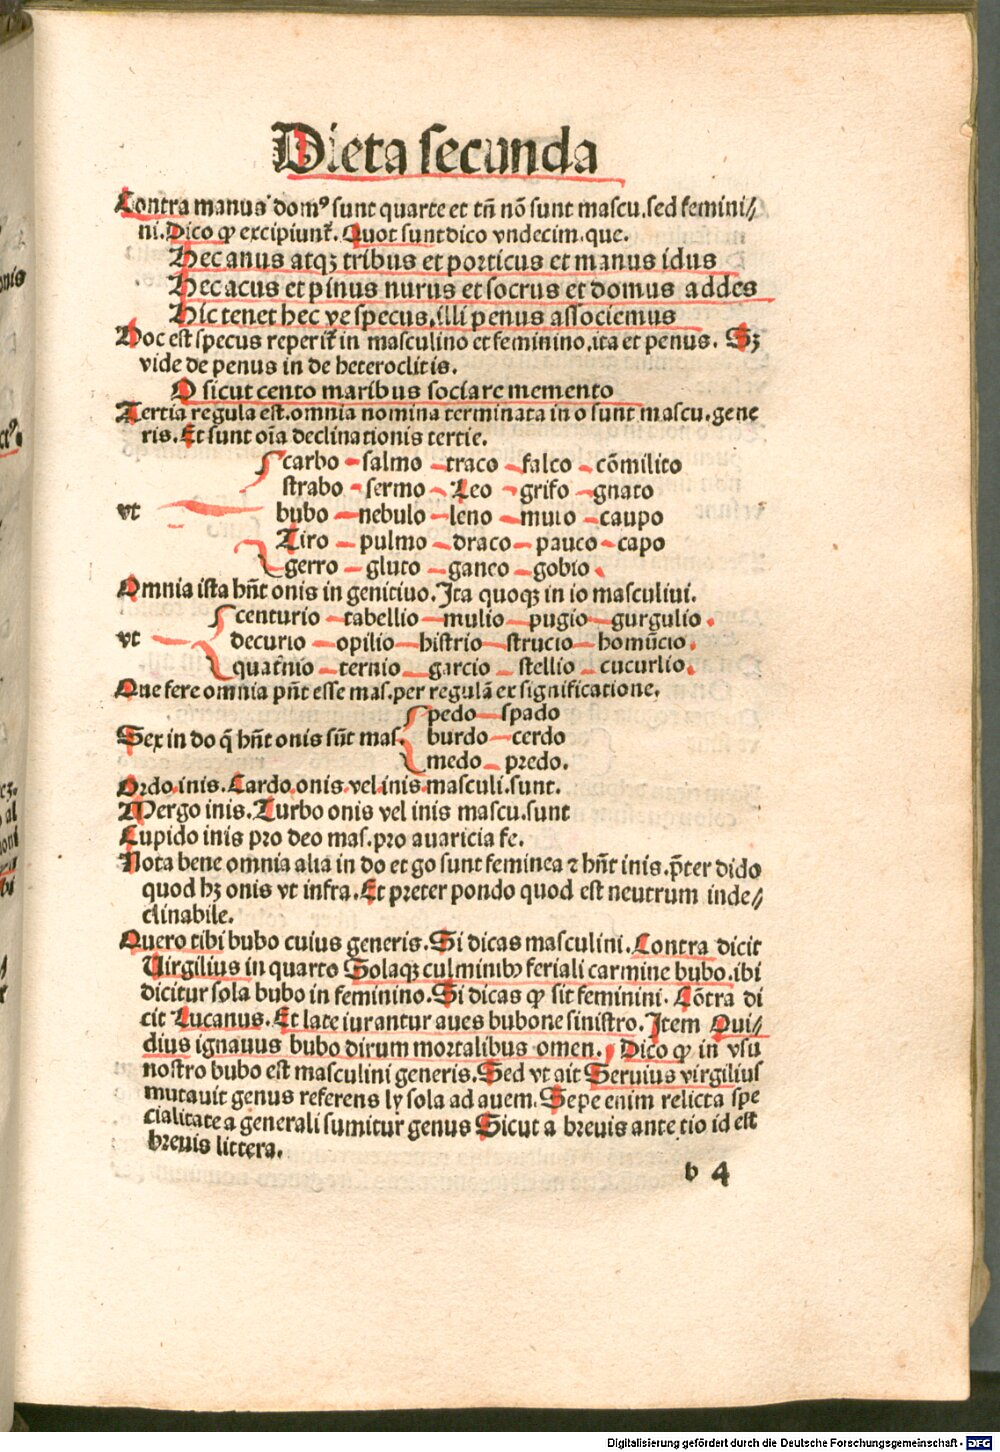 Dieta secunda
Contra manus domꝰ sunt quarte et tñ nõ sunt mascu. sed femini//
ni. Dico ꝙ excipiunt̃. Quot sunt dico vndecim. que.
Hec anus atqꝫ tribus et porticus et manus idus
Hec acus et pinus nurus et socrus et domus addes
Hic tenet hec ve specus, illi penus associemus
Hoc est specus reperit̃ in masculino et feminino, ita et penus. Sꝫ
vide de penus in de heteroclitis.
O sicut cento maribus sociare memento
Tertia regula est. omnia nomina terminata in o sunt mascu. gene
ris. Et sunt oĩa declinationis tertie.
carbo salmo traco falco cõmilito
strabo sermo Leo grifo gnato
vt bubo nebulo leno mulo caupo
Tiro pulmo draco pauco capo
gerro gluto ganeo gobio
Omnia ista hñt onis in genitiuo. Ita quoqꝫ in io masculiui.
centurio tabellio mulio pugio gurgulio.
vt decurio opilio histrio strucio homũcio.
quat̃nio ternio garcio stellio cucurlio.
Que fere omnia pñt esse mas. per regulã ex significatione.
pedo spado
Sex in do q̃ hñt onis sũt mas. burdo cerdo
medo predo.
Ordo. inis. Cardo. onis. vel. inis. masculi. sunt.
Mergo inis. Turbo onis vel inis mascu. sunt
Cupido inis pro deo mas. pro auaricia fe.
Nota bene omnia alia in do et go sunt feminea ⁊ hñt inis. p̃ter dido
quod hꝫ onis vt infra. Et preter pondo quod est neutrum inde//
clinabile.
Quero tibi bubo cuius generis. Si dicas masculini. Contra dicit
Virgilius in quarto Solaqꝫ culminibꝰ ferali carmine bubo. ibi
dicitur sola bubo in feminino. Si dicas ꝙ sit feminini. Cõtra di
cit Lucanus. Et late iurantur aues bubone sinistro. Item Oui//
dius ignauus bubo dirum mortalibus omen. Dico ꝙ in vsu
nostro bubo est masculini generis. Sed vt ait Seruius virgilius
mutauit genus referens ly sola ad auem. Sepe enim relicta spe
cialitate a generali sumitur genus Sicut a breuis ante tio id est
breuis littera.
b 4
Digitalisierung gefördert durch die Deutsche Forschungsgemeinschaft - DFG